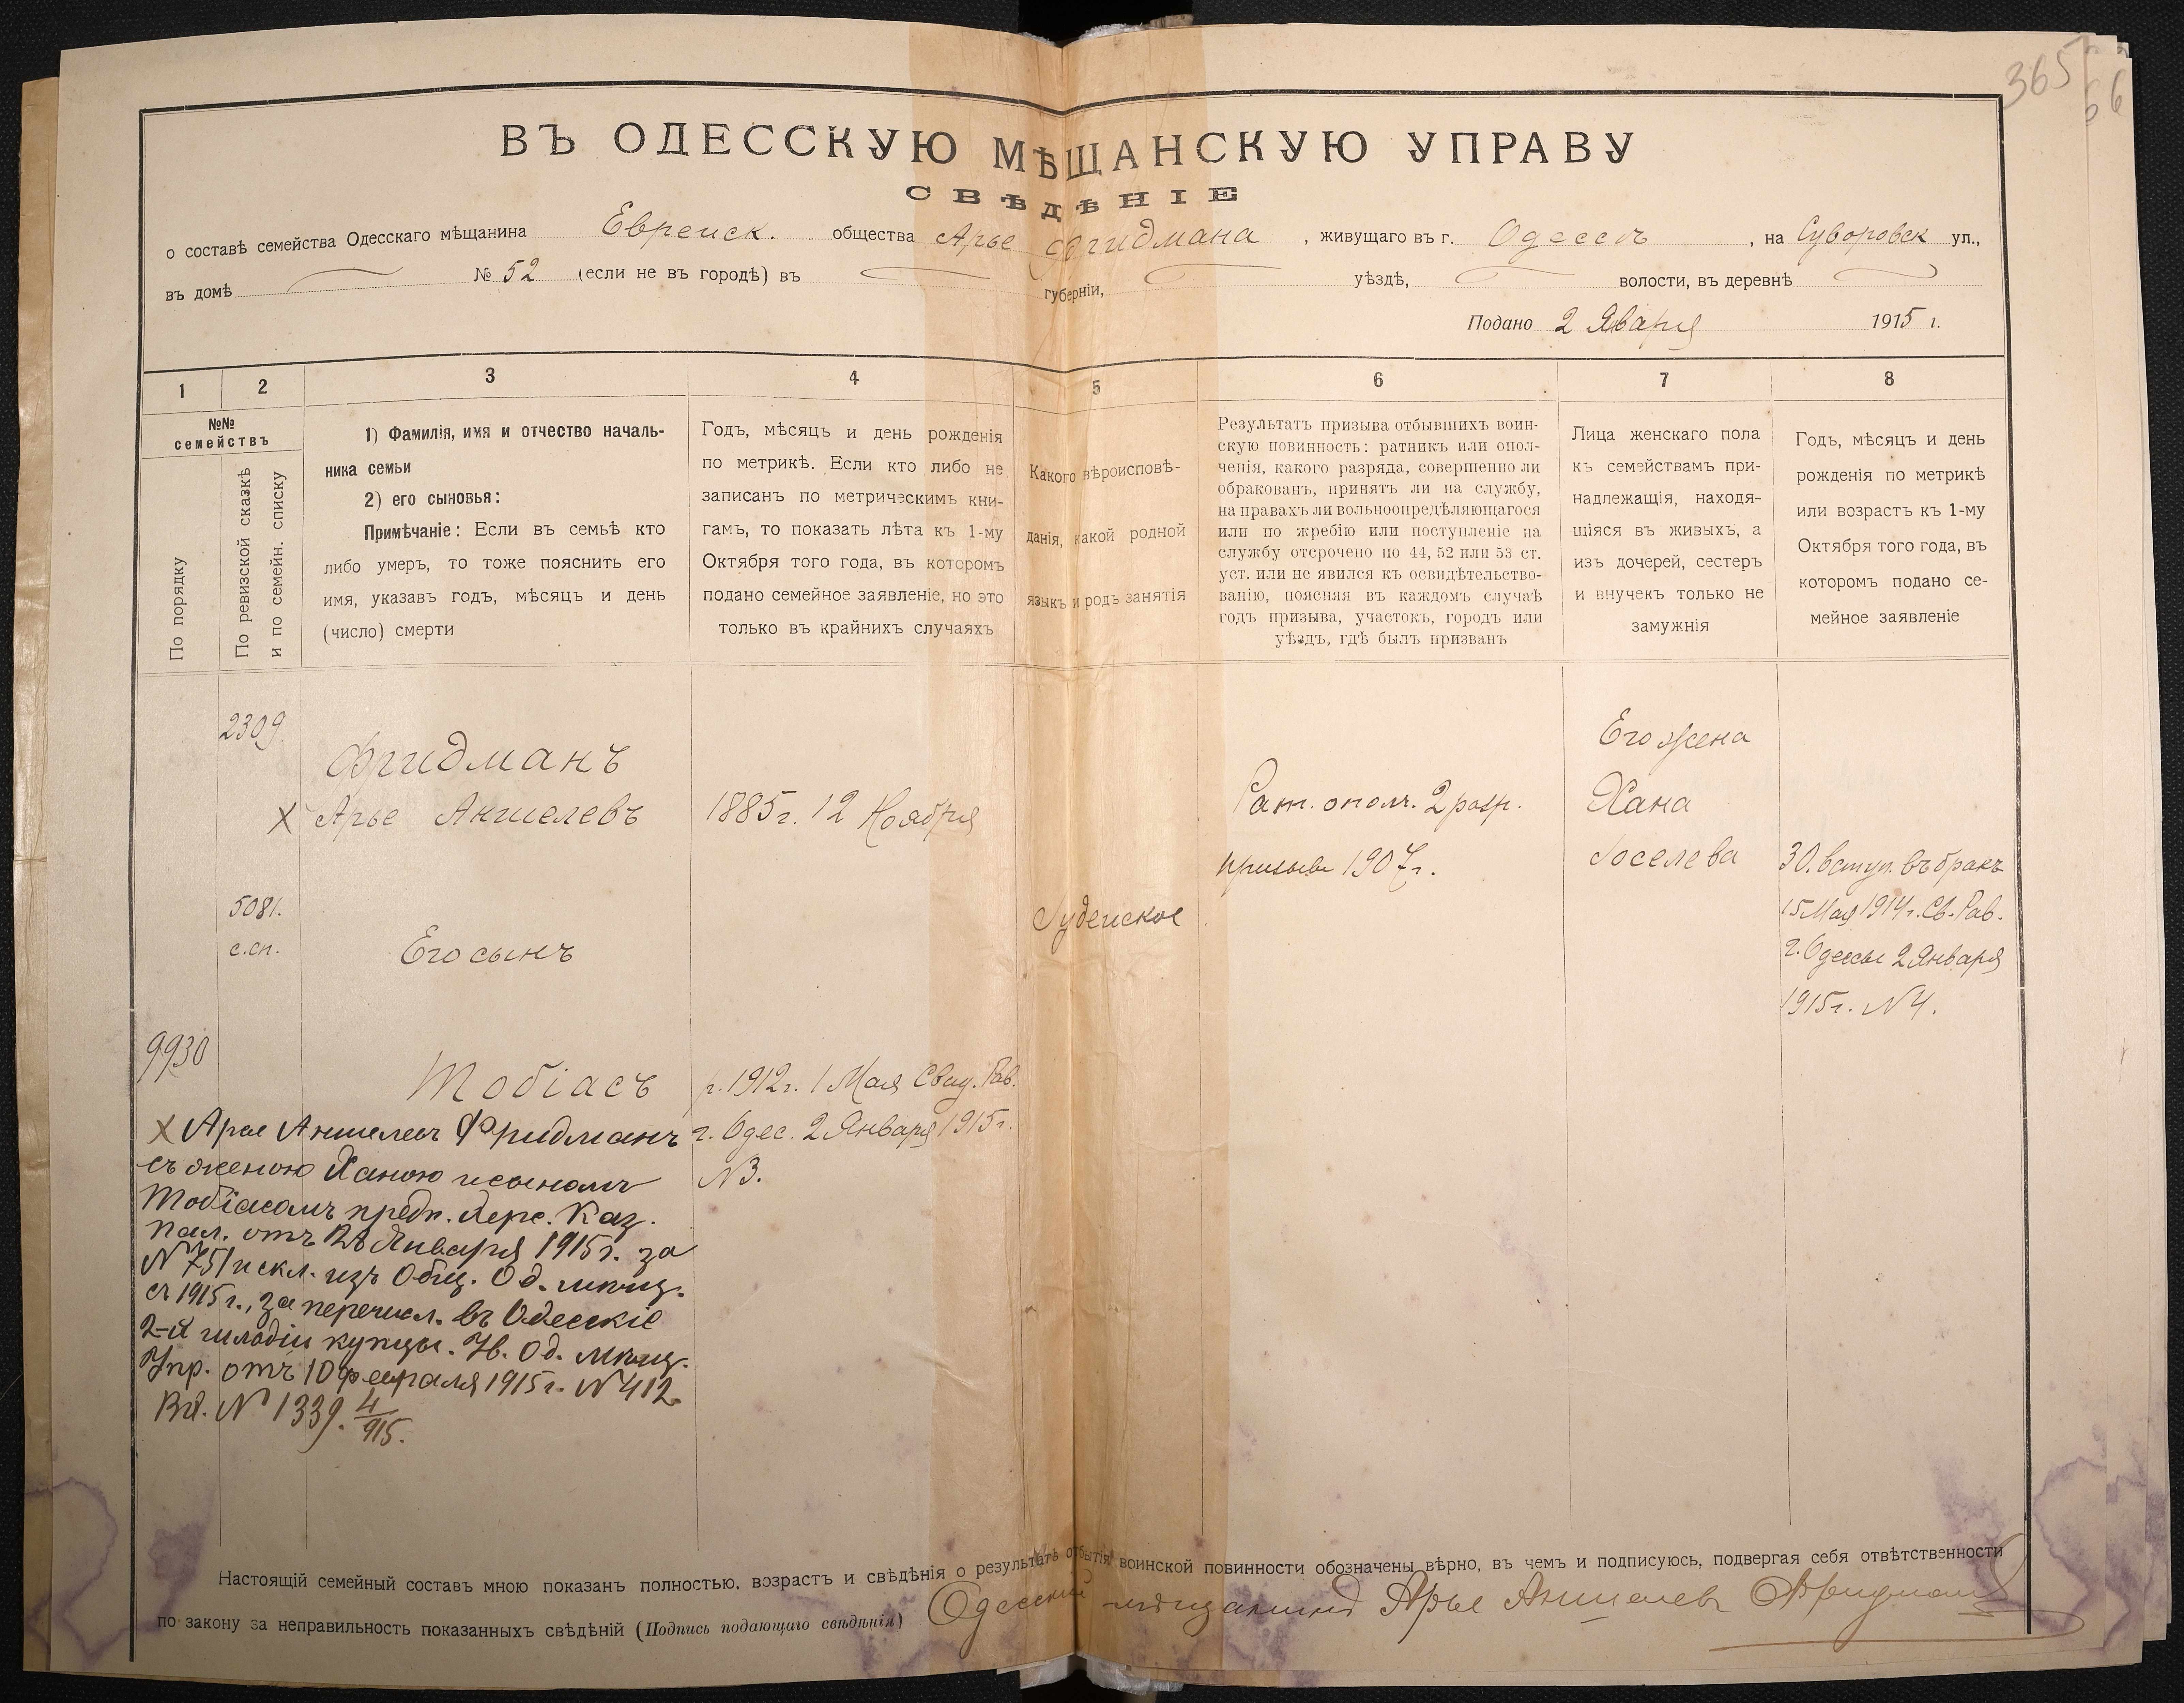 365
66
ВЪ ОДЕССКУЮ МѢЩАНСКУЮ УПРАВУ
СВѢДѢНІЕ
о составѣ семейства Одесскаго мѣщанина Евреиск. общества Арье Фридмана, живущаго въ г. Одессѣ, на Суворовск ул.,
въ домѣ № 52 (если не въ городѣ) въ губерніи, уѣздѣ, волости, въ деревнѣ
Подано 2 Января 1915 г.
1 2 3 4 5 6 7 8
№№ семействъ
По порядку
По ревизской сказкѣ
и по семейн. списку
1) Фамилія, имя и отчество началь-
ника семьи
2) его сыновья:
Примѣчаніе: Если въ семьѣ кто
либо умеръ, то тоже пояснить его
имя, указавъ годъ, мѣсяцъ и день
(число) смерти
Годъ, мѣсяцъ и день рожденія
по метрикѣ. Если кто либо не
записанъ по метрическимъ кни-
гамъ, то показать лѣта къ 1-му
Октября того года, въ которомъ
подано семейное заявленіе, но это
только въ крайнихъ случаяхъ
Какого вѣроисповѣ-
данія, какой родной
языкъ и родъ занятія
Результатъ призыва отбывшихъ воин-
скую повинность: ратникъ или опол-
ченія, какого разряда, совершенно ли
обракованъ, принятъ ли на службу,
на правахъ ли вольноопредѣляющагося
или по жребію или поступленіе на
службу отсрочено по 44, 52 или 53 ст.
уст. или не явился къ освидѣтельство-
ванію, поясняя въ каждомъ случаѣ
годъ призыва, участокъ, городъ или
уѣздъ, гдѣ былъ призванъ
Лица женскаго пола
къ семействамъ при-
надлежащія, находя-
щіяся въ живыхъ, а
изъ дочерей, сестеръ
и внучекъ только не
замужнія
Годъ, мѣсяцъ и день
рожденія по метрикѣ
или возрастъ къ 1-му
Октября того года, въ
которомъ подано се-
мейное заявленіе
2309.
Фридманъ
х Арье Аншелевъ
1885 г. 12 Ноября
Рат. ополч. 2 разр.
призыва 1907 г.
Его жена
Хана
Іоселева
30. вступ. въ бракъ
15 Мая 1914 г. Св. Рав.
г. Одессы 2 Января
1915 г. N 4.
5081.
с.сп.
Его сынъ
Іудейское
9930
Тобіасъ
р. 1912 г. 1 Мая Свид. Рав.
г. Одес. 2 Января 1915 г.
N 3.
х Арье Аншелевъ Фридманъ
съ женою Ханою и сыномъ
Тобіасомъ предп. Херс. Каз.
Пал. отъ 28 Января 1915 г. за
N 751 искл. изъ Общ. Од. мѣщ.
съ 1915 г., за перечисл. въ Одесскіе
2-й гильдіи купцы. Ув. Од. Мѣщ.
Упр. отъ 10 февраля 1915 г. N 412.
Вх. N 1339. 4/915.
Настоящій семейный составъ мною показанъ полностью, возрастъ и свѣдѣнія о результатѣ отбытія воинской повинности обозначены вѣрно, въ чемъ и подписуюсь, подвергая себя отвѣтственности
по закону за неправильность показанныхъ свѣдѣній (Подпись подающаго свѣдѣнія) Одесский мѣщанинъ Арье Аншелевъ Фридманъ